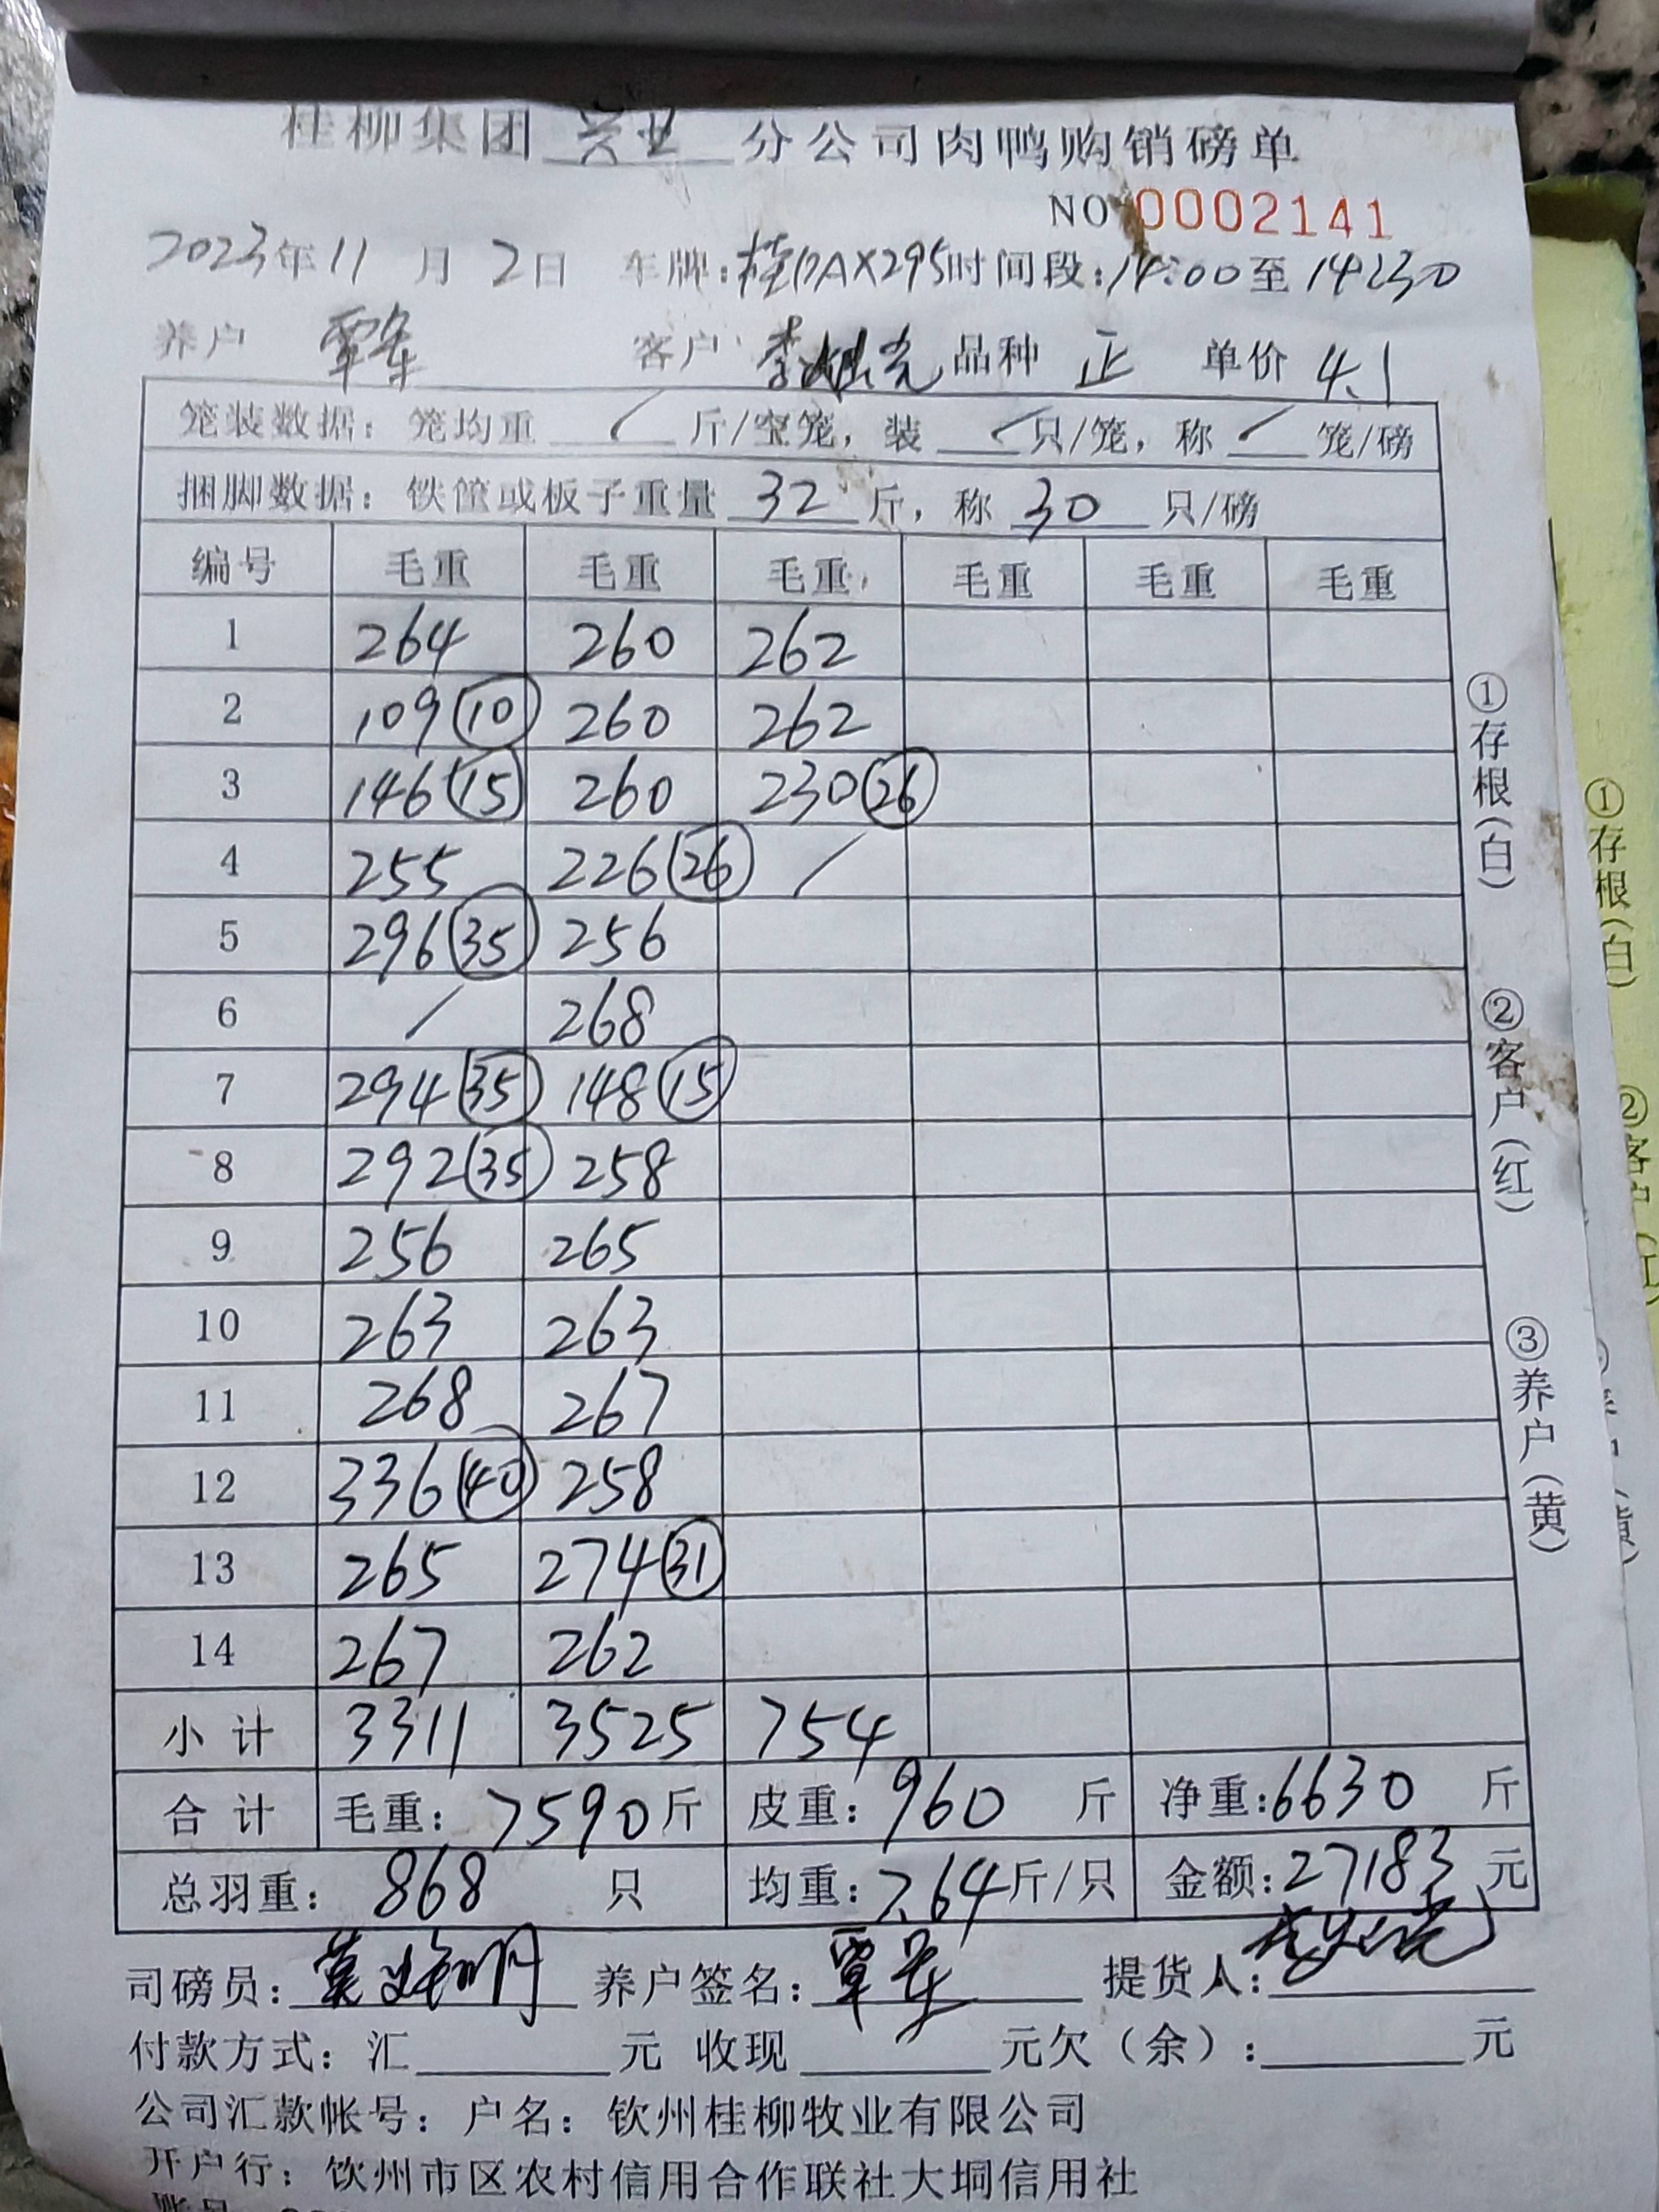 桂柳集团 兴业 分公司肉鸭购销磅单
NO 0002141
2023年11月2日 车牌:桂DAX295 时间段:14:00至14:30
养户 覃车 客户 李 品种 正 单价 4.1
笼装数据: 笼均重 / 斤/空笼, 装 / 只/笼, 称 / 笼/磅
捆脚数据: 铁筐或板子重量 32 斤, 称 30 只/磅
编号 毛重 毛重 毛重 毛重 毛重 毛重
1 264 260 262
2 109 (10) 260 262
3 146 (15) 260 230 (26)
4 255 226 (26) /
5 296 (35) 256
6 / 268
7 294 (35) 148 (15)
8 292 (35) 258
9 256 265
10 263 263
11 268 267
12 336 (40) 258
13 265 274 (31)
14 267 262
小计 3311 3525 754
合计 毛重: 7590斤 皮重: 960 斤 净重:6630 斤
总羽重: 868 只 均重: 7.64斤/只 金额:27183元
司磅员: 养户签名: 覃车 提货人:
付款方式: 汇 元 收现 元欠(余): 元
公司汇款帐号: 户名: 钦州桂柳牧业有限公司
开户行: 钦州市区农村信用合作联社大垌信用社
①存根(白)
②客户(红)
③养户(黄)
①存根(白)
②客户